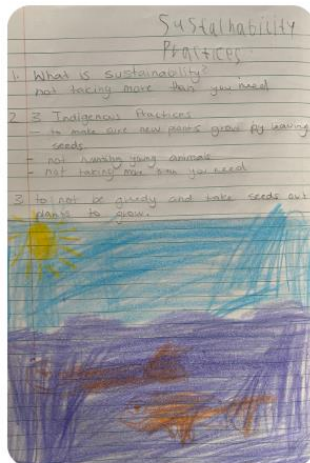 Sustainability
Practices
1. What is sustainability?
not taking more than you need
2 3 Indigenous Practices
- to make sure new plants grow by leaving
seeds.
- not hunting young animals
- not taking more than you need
3. to not be greedy and take seeds out
plants to grow.